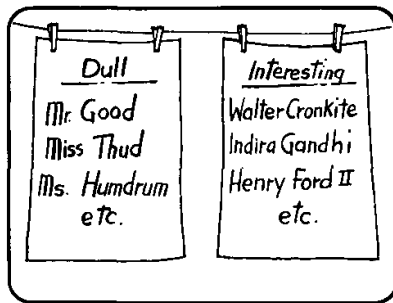 Dull
Mr. Good
Miss Thud
Ms. Humdrum
etc.
Interesting
Walter Cronkite
Indira Gandhi
Henry Ford II
etc.